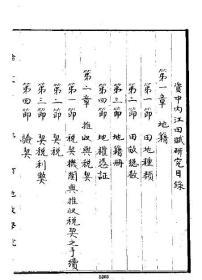 資中內江田賦硏究目錄
第一章 地籍
第一節 田地種類
第二節 田畝總數
第三節 地籍冊
第四節 地權憑証
第二章 推收與稅契
第一節 稅契機關與推收稅契之手續
第二節 契稅
第三節 契稅利弊
第四節 驗契